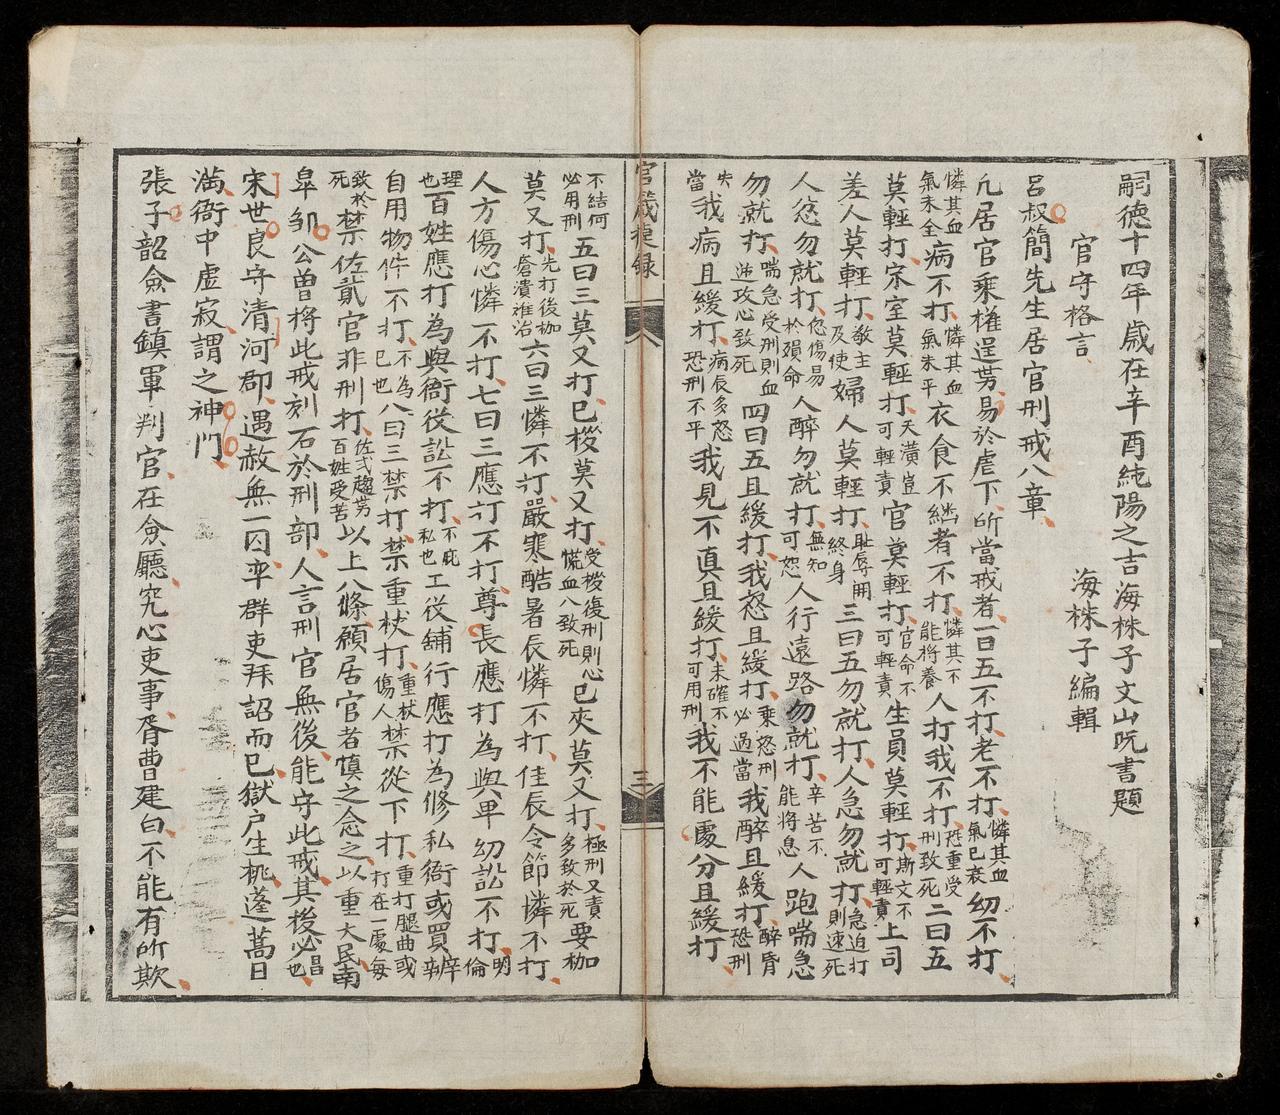 嗣德十四年歲在辛酉純陽之吉海株子文山阮書題
官守格言　海株子編輯
呂叔簡先生居官刑戒八章
凡居官乘權逞勢易於虐下所當戒者一曰五不打老不打憐其血氣已衰幼不打
憐其血氣未全病不打憐其血氣未平衣食不繼者不打憐其不能將養人打我不打恐重受刑致死二曰五
莫輕打宋室莫輕打天潢豈可輕責官莫輕打官命不可輕責生員莫輕打斯文不可輕責上司
差人莫輕打敬主及使婦人莫輕打耻辱開終身三曰五勿就打人急勿就打急迫打則速死
人忿勿就打忿傷易於殞命人醉勿就打無知可恕人行遠路勿就打辛苦不能將息人跑喘急
勿就打喘急受刑則血沽攻心致死四曰五且緩打我怒且緩打乘怒刑必過當我醉且緩打醉昏恐刑
失當我病且緩打病辰多怒恐刑不平我見不真且緩打未確不可用刑我不能處分且緩打
官箴捷錄　三
不結何必用刑五曰三莫又打已桚莫又打受桚復刑則心慌血八致死已夾莫又打極刑又責多致於死要枷
莫又打先打後枷瘡潰难治六曰三憐不打嚴寒酷暑辰憐不打佳辰令節憐不打
人方傷心憐不打七曰三應打不打尊長應打為與卑幼訟不打明倫
理也百姓應打為與衙役訟不打不庇私也工役舖行應打為修私衙或買辦
自用物件不打不為已也八曰三禁打禁重杖打重杖傷人禁從下打重打腿曲或打在一處每
致於死禁佐貳官非刑打佐弍趨勢百姓受苦以上八條願居官者慎之念之以重大民南
皐邹公曾将此戒刻石於刑部人言刑官無後能守此戒其後必昌也
宋世良守清河郡遇赦無一囚率群吏拜詔而已獄户生桃蓬蒿日
满衙中虚寂謂之神門
張子韶僉書鎮軍判官在僉廳究心吏事胥曹建白不能有所欺